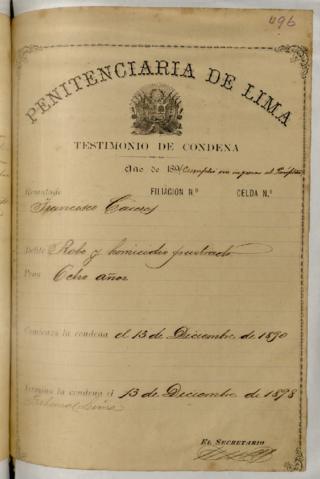 496
PENITENCIARIA DE LIMA
TESTIMONIO DE CONDENA
Año de 189 Cumplió
FILIACION N.º CELDA N.º
Rematado
Francisco Cáceres
Delito Robo y homicidio frustrado
Pena Ocho años
Comienza la condena el 13 de Diciembre de 1890
Termina la condena el 13 de Diciembre de 1898
EL SECRETARIO